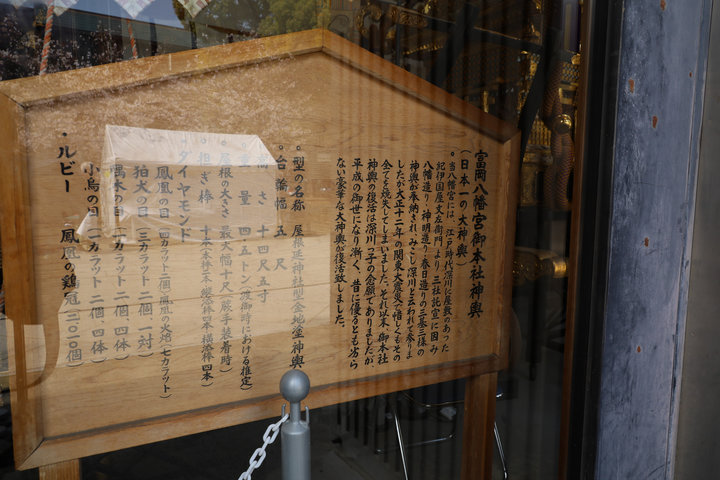 富岡八幡宮御本社神輿
(日本一の大神輿)
。当八幡宮には、江戸時代深川に屋敷のあった
紀伊国屋文左衛門より三社託宣に因み
八幡造り・神明造り・春日造りの三基三様の
神輿が奉納され、みこし深川と云われて参りま
したが大正十二年の関東大震災で惜しくもその
全てを焼失してしまいました。それ以来、御本社
神輿の復活は深川っ子の念願でありましたが、
平成の御世になり漸く、昔に優るとも劣ら
ない豪華な大神輿が復活致しました。
・型の名称 屋根延神社型金地塗神輿
・台輪幅 五尺
・高さ 十四尺五寸
・重量 四・五トン(渡御時における推定)
・屋根の大きさ 最大幅十尺(蕨手装着時)
・担ぎ棒
・ダイヤモンド
鳳凰の目(四カラット二個)鳳凰の火焔(七カラット)
狛犬の目(三カラット 二個 一対)
一カラット 二個 四体
小鳥の目(一カラット 二個 四体)
・ルビー 鳳凰の鶏冠(二〇一〇個)